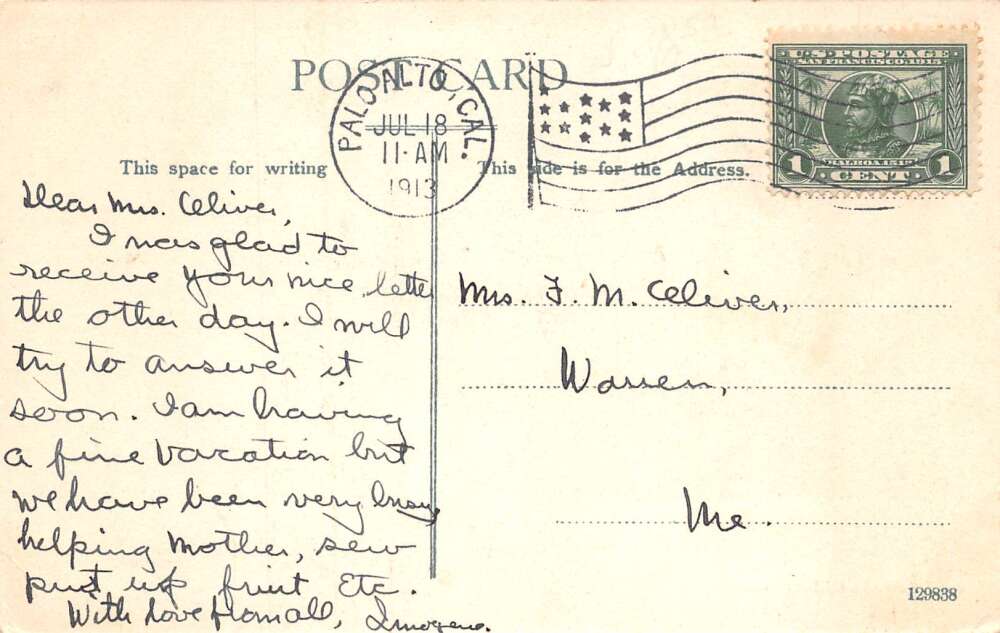 POST CARD
PALO ALTO, CAL.
JUL 18
11-AM
1913
U.S. POSTAGE
SAN FRANCISCO, 1915
BALBOA 1513
1 CENT 1
This space for writing
This side is for the Address.
Dear Mrs. Oliver,
I was glad to
receive your nice letter
the other day. I will
try to answer it
soon. I am having
a fine vacation but
we have been very busy
helping Mother, sew
put up fruit Etc.
With love from all, Imogene.
Mrs. F. M. Oliver,
Warren,
Me.
129838